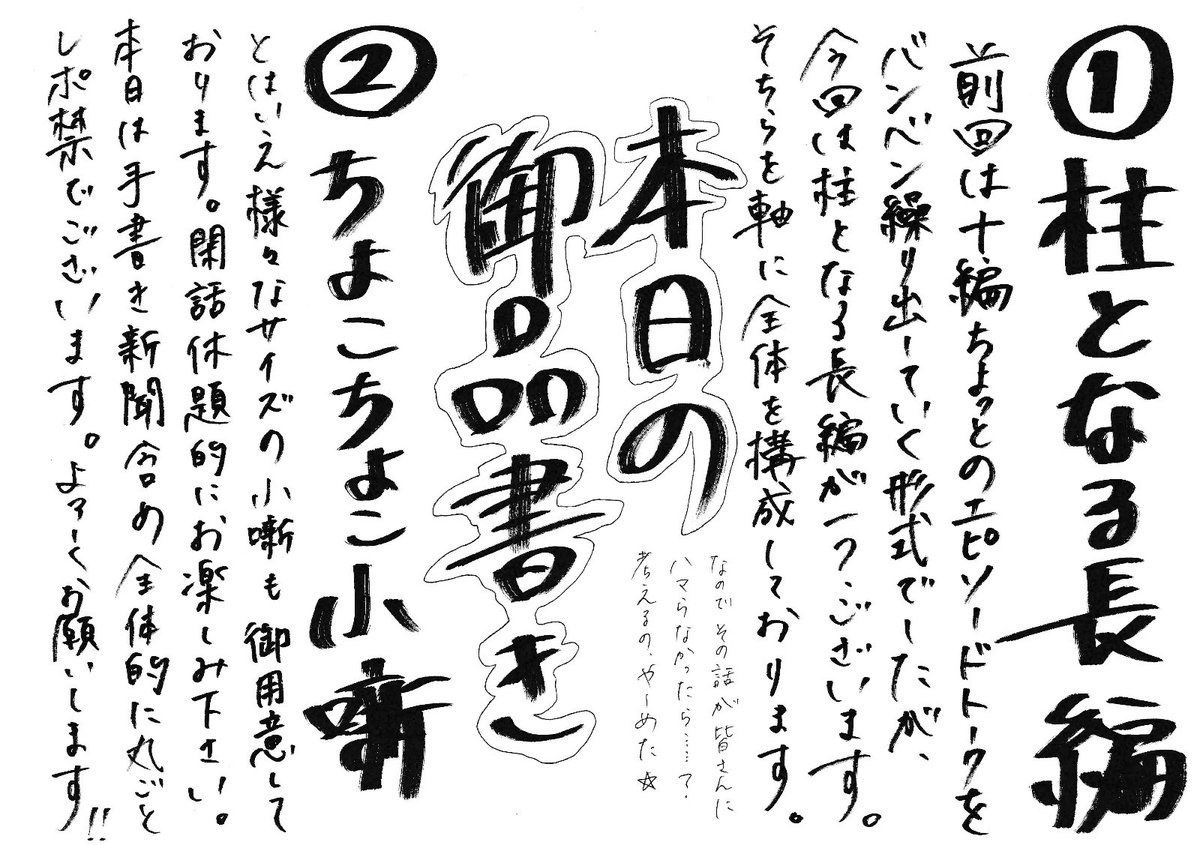 ①柱となる長編
前回は十編ちょっとのエピソードトークを
バンバン繰り出していく形式でしたが、
今回は柱となる長編が一つございます。
そちらを軸に全体を構成しております。
なので その話が 皆さんに
ハマらなかったら……？
考えるの、やーめた☆
本日の
御品書き
②ちょこちょこ小噺
とはいえ様々なサイズの小噺も御用意して
おります。閑話休題的にお楽しみ下さい。
本日は手書き新聞含め全体的に丸ごと
レポ禁でございます。よろしくお願いします!!